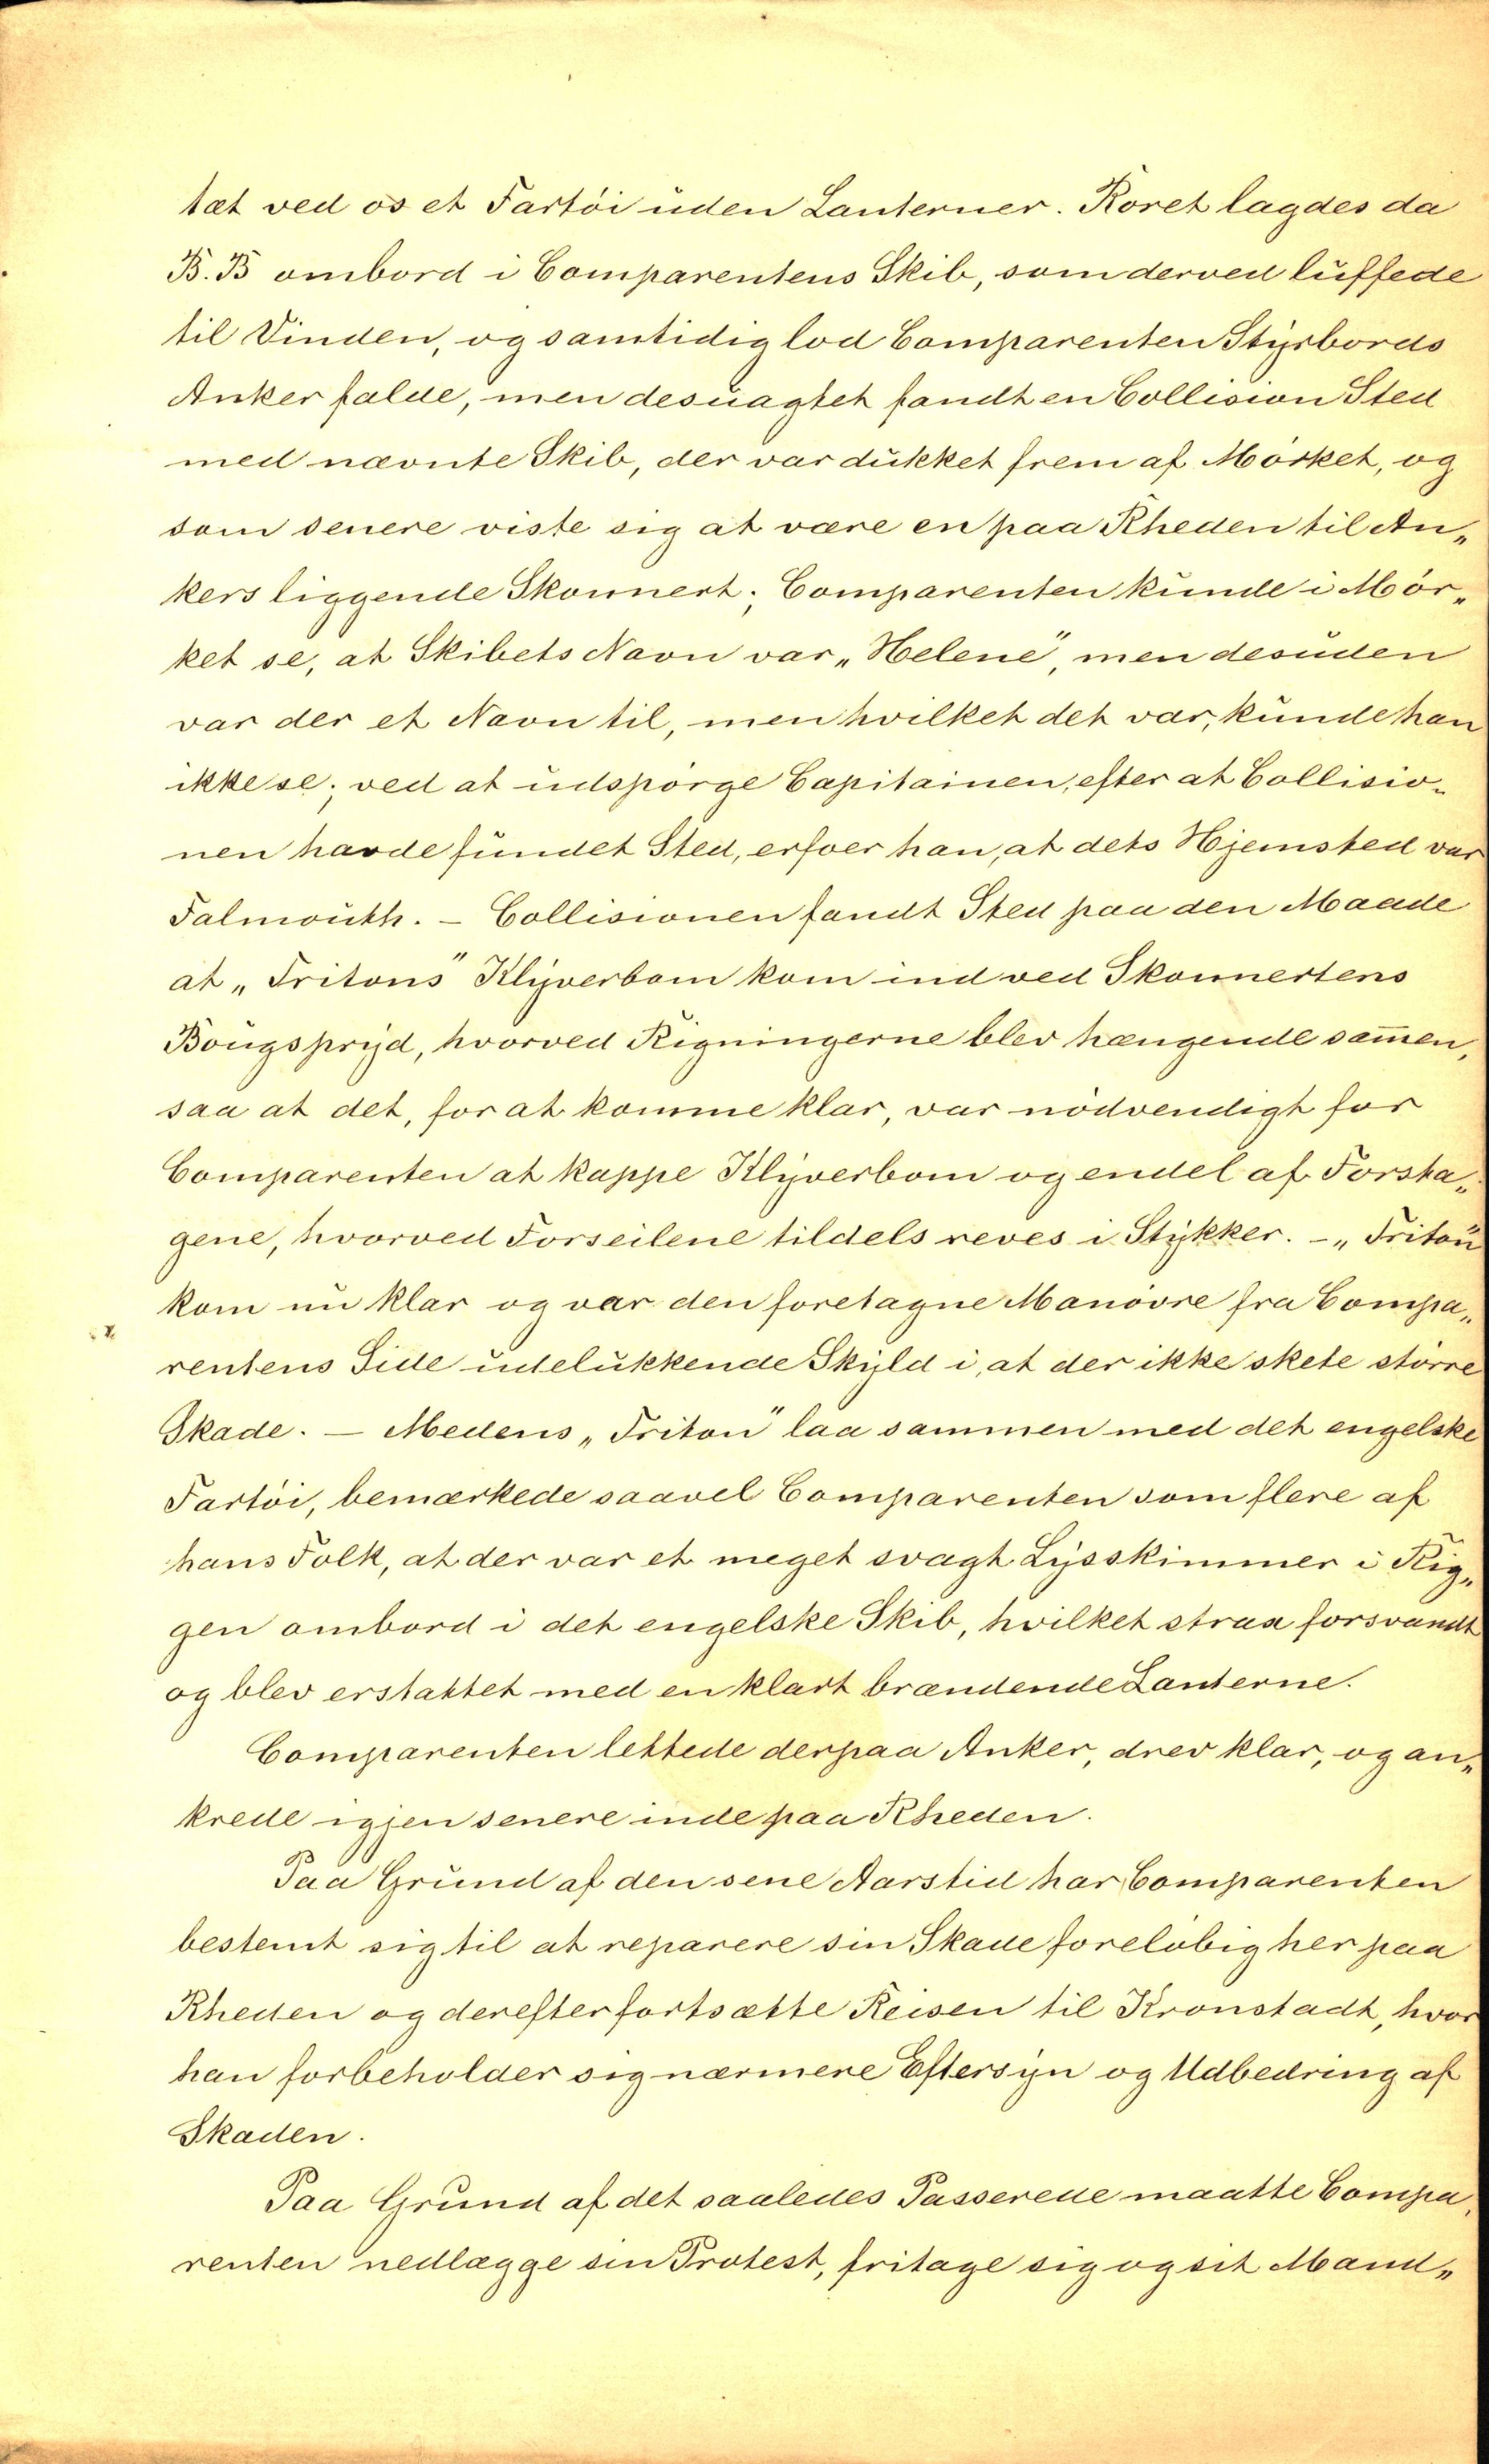 tæt ved os et Fartöi uden Lanterner. Roret lagdes da
B.B ombord i Comparentens Skib, som derved luffede
til Vinden, og samtidig lod Comparenten Styrbords
Anker falde, men desuagtet fandt en Collision Sted
med nævnte Skib, der var dukket frem af Mörket, og
som senere viste sig at være en paa Rheden til An„
kers liggende Skonnert; Comparenten kunde i Mör„
ket se, at Skibets Navn var „Helene", men desuden
var der et Navn til, men hvilket det var, kunde han
ikke se; ved at udspörge Capitainen, efter at Collisio„
nen havde fundet Sted, erfoer han, at dets Hjemsted var
Falmouth. – Collisionen fandt Sted paa den Maade
at „Tritons" Klyverbom kom ind ved Skonnertens
Bougspryd, hvorved Rigningerne blev hængende sam̄en,
saa at det, for at komme klar, var nödvendigt for
Comparenten at kappe Klyverbom og endel af Forsta„
gene, hvorved Forseilene tildels reves i Stykker. – „Triton"
kom nu klar og var den foretagne Manövre fra Compa„
rentens Side udelukkende Skyld i, at der ikke skete större
Skade. – Medens „Triton" laa sammen med det engelske
Fartöi, bemærkede saavel Comparenten som flere af
hans Folk, at der var et meget svagt Lysskimmer i Rig„
gen ombord i det engelske Skib, hvilket strax forsvandt
og blev erstattet med en klart brændende Lanterne.
Comparenten lettede derpaa Anker, drev klar, og an„
krede igjen senere inde paa Rheden.
Paa Grund af den sene Aarstid har Comparenten
bestemt sig til at reparere sin Skade forelöbig her paa
Rheden og derefter fortsætte Reisen til Kronstadt, hvor
han forbeholder sig nærmere Eftersyn og Udbedring af
Skaden.
Paa Grund af det saaledes Passerede maatte Compa„
renten nedlægge sin Protest, fritage sig og sit Mand„